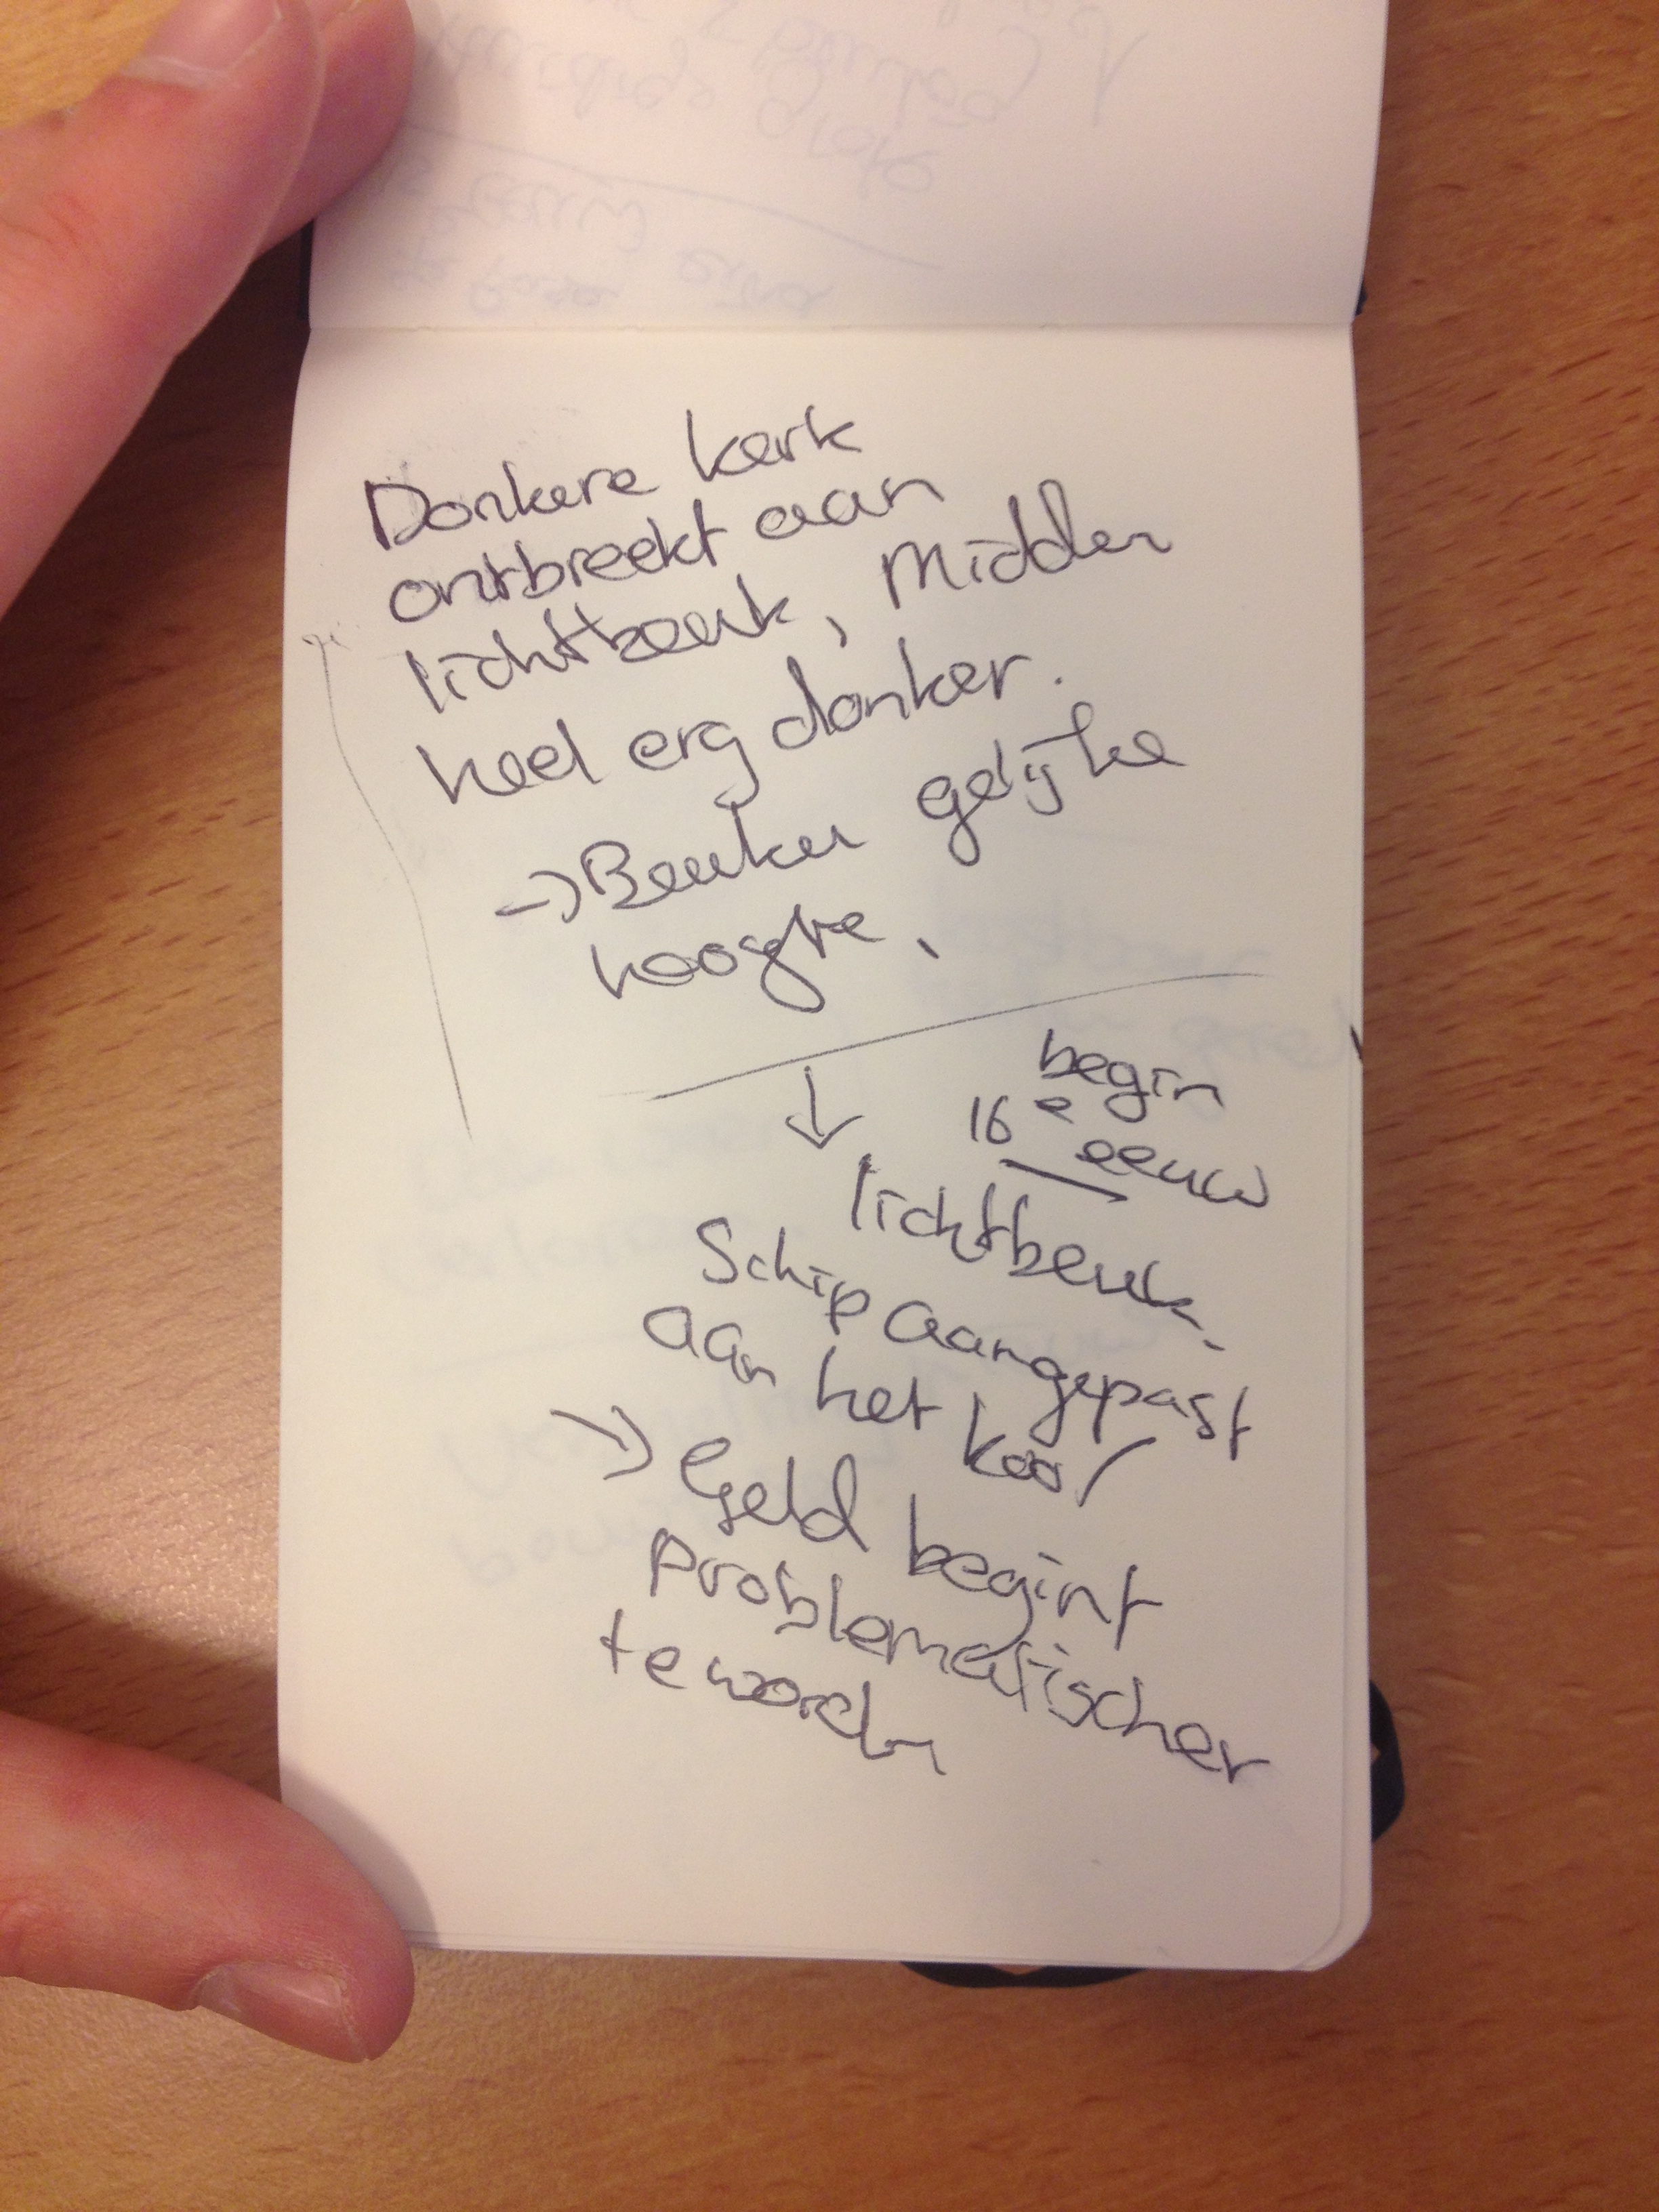 Donkere kerk
ontbreekt aan
lichtbeuk, Midden
heel erg donker.
→ Beuken gelijke
hoogte.
↓
begin
16e eeuw
lichtbeuk.
Schip aangepast
aan het koor
→ Geld begint
problematischer
te worden